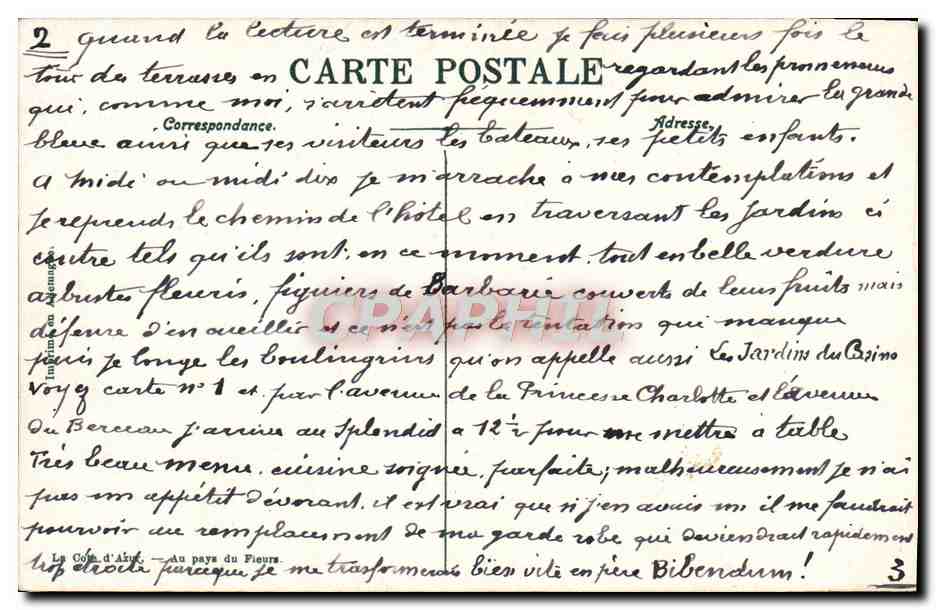 2 quand la lecture est terminée je fais plusieurs fois le
tour des terrasses en CARTE POSTALE regardant les promeneurs
qui, comme moi, s'arrêtent fréquemment pour admirer la grande
Correspondance. Adresse.
bleue ainsi que ses visiteurs les bateaux, ses petits enfants.
A midi ou midi dix je m'arrache à mes contemplations et
je reprends le chemin de l'hôtel en traversant les jardins ci
contre tels qu'ils sont en ce moment. tout en belle verdure
arbustes fleuris, figuiers de Barbarie couverts de leurs fruits mais
défense d'en cueillir et ce n'est pas la tentation qui manque
puis je longe les boulingrins qu'on appelle aussi Les Jardins du Casino
Voyez carte n° 1 et par l'avenue de la Princesse Charlotte et l'avenue
du Berceau j'arrive au Splendid à 12 1/2 pour me mettre à table
Très beau menu, cuisine soignée, parfaite; malheureusement je n'ai
pas un appétit dévorant, il est vrai que si j'en avais un il me faudrait
pourvoir au remplacement de ma garde robe qui deviendrait rapidement
La Cote d'Azur. — Au pays du Fleurs.
trop étroite parceque je me transformerais bien vite en père Bibendum! 3
Imprimé en Allemagne.
CPAPHIL